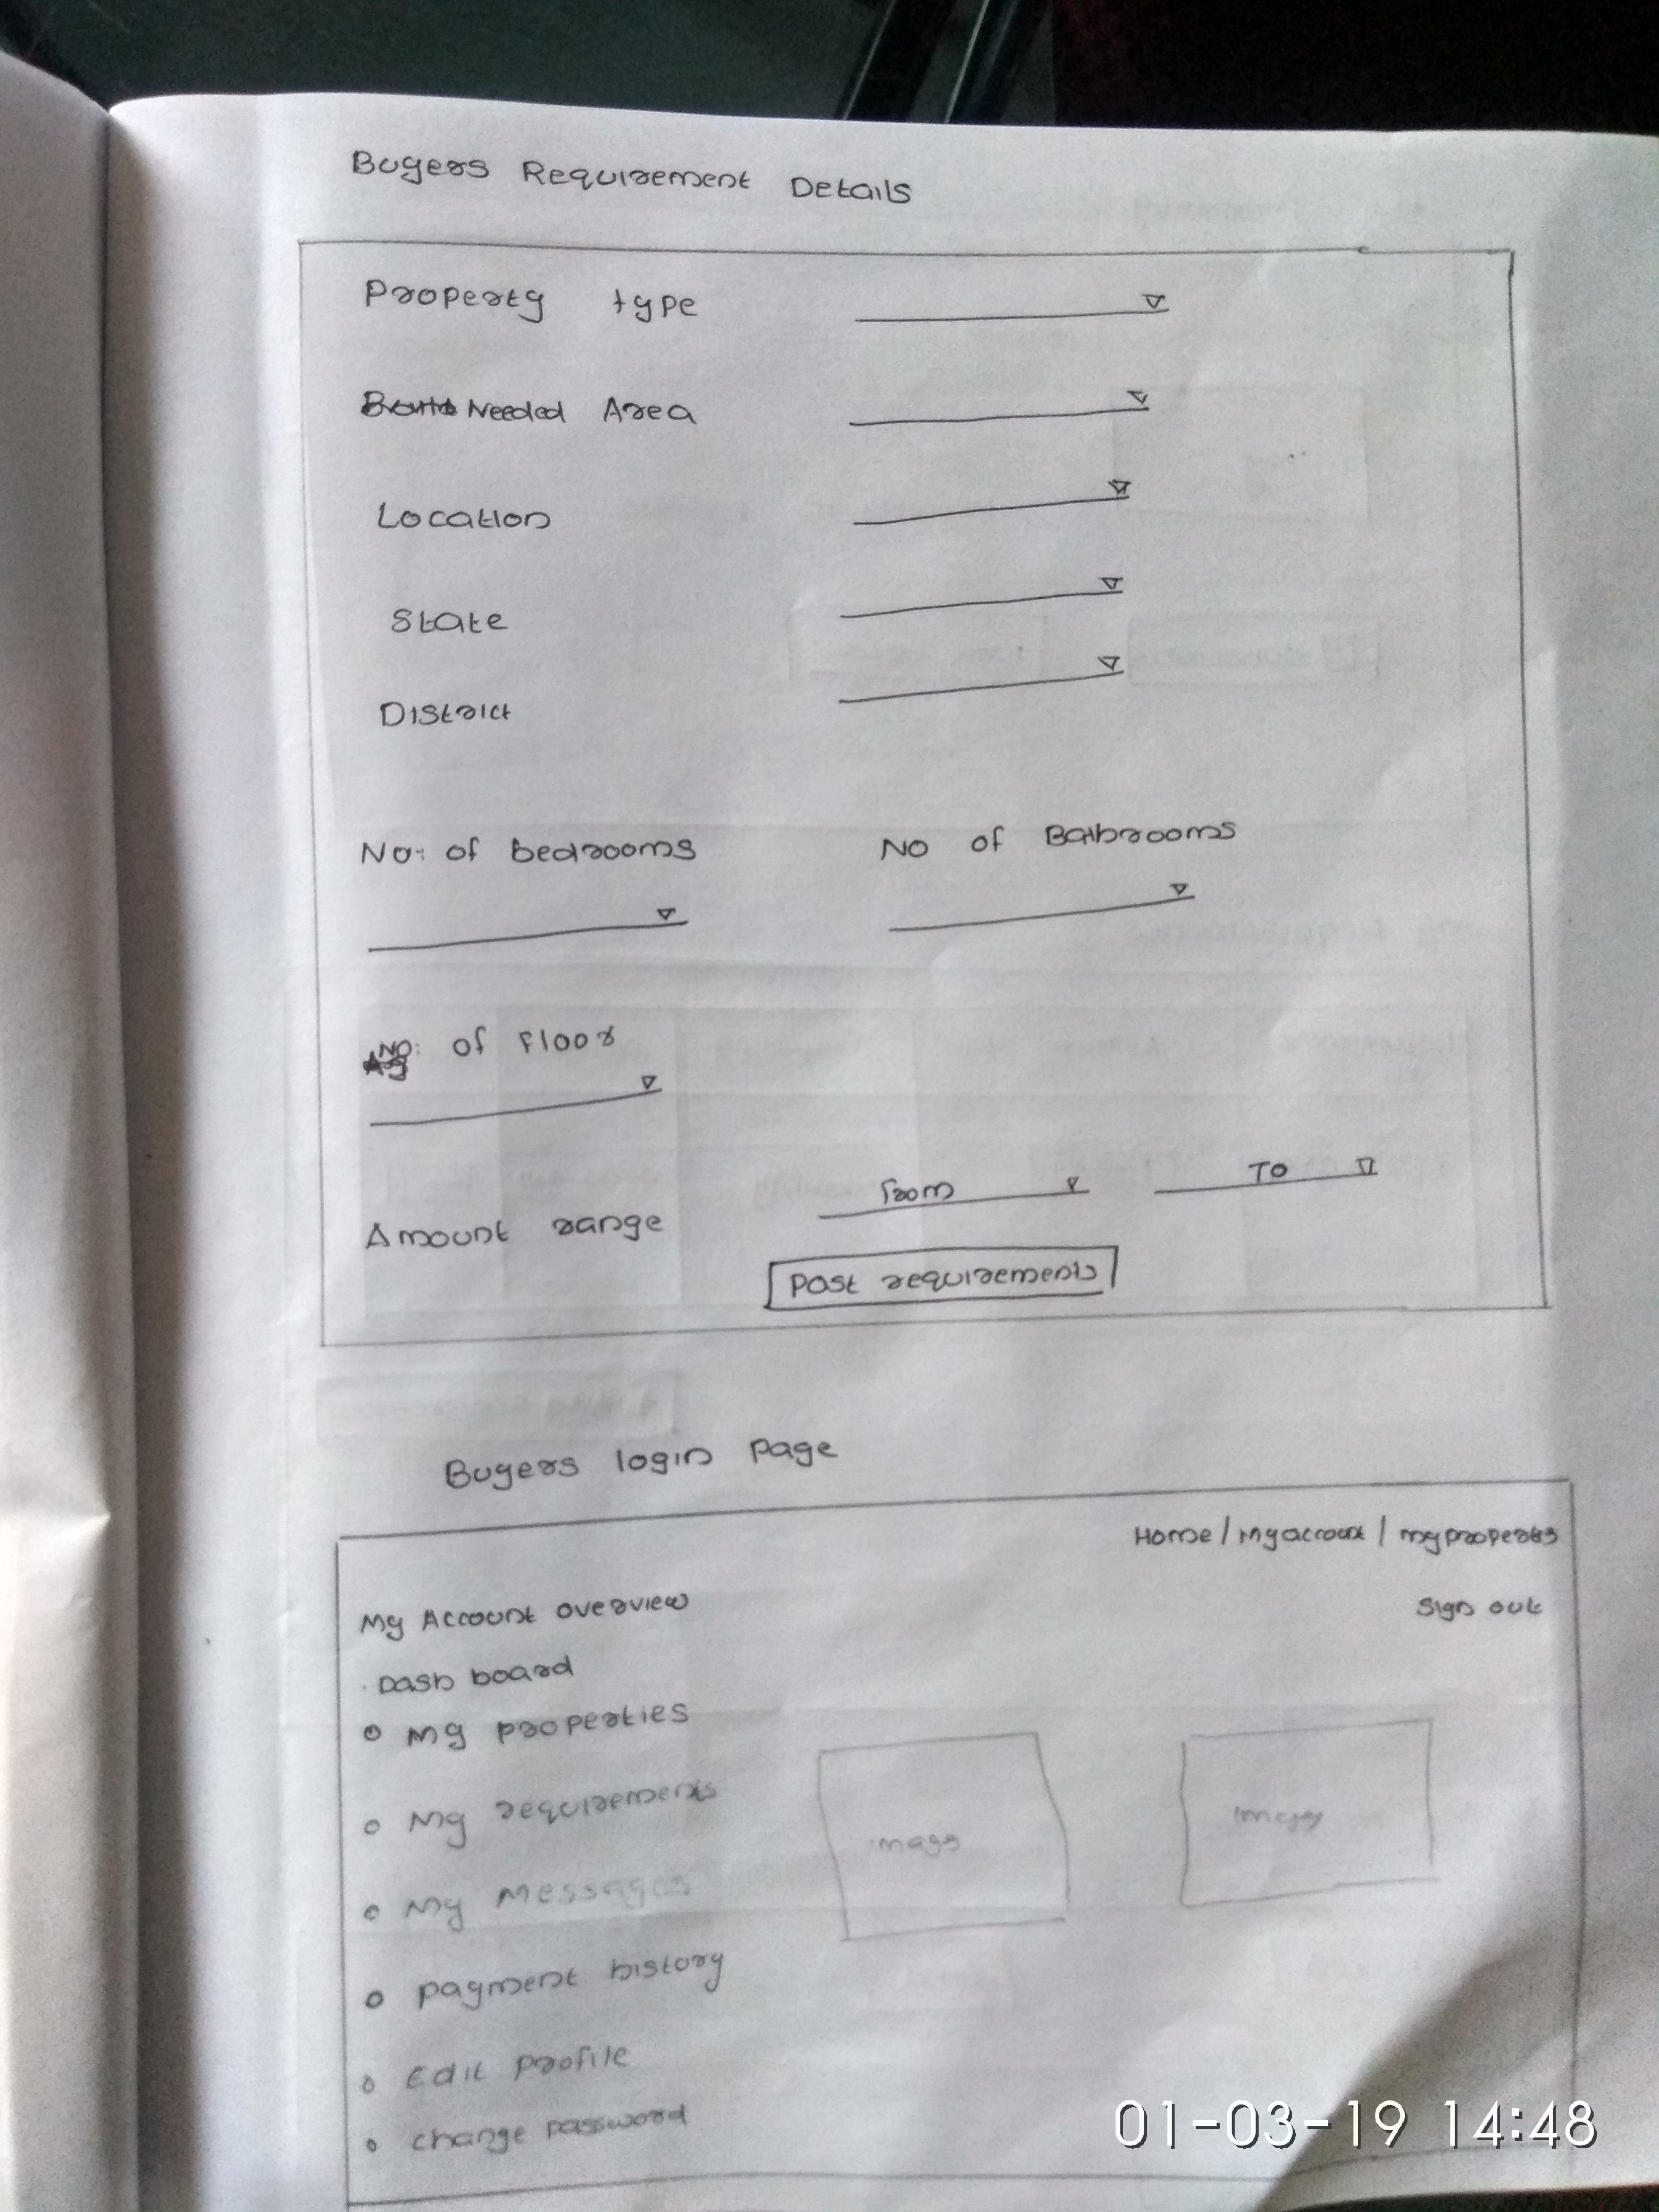 Buyers Requirement Details
Property type
Needed Area
Location
State
District
No: of bedrooms
No of Bathrooms
No: of Floor
Amount range
from
To
Post requirements
Buyers login Page
Home / My account / my propertys
My Account overview
Sign out
Dash board
My properties
My requirements
My Messages
payment history
Edit Profile
change password
01-03-19 14:48